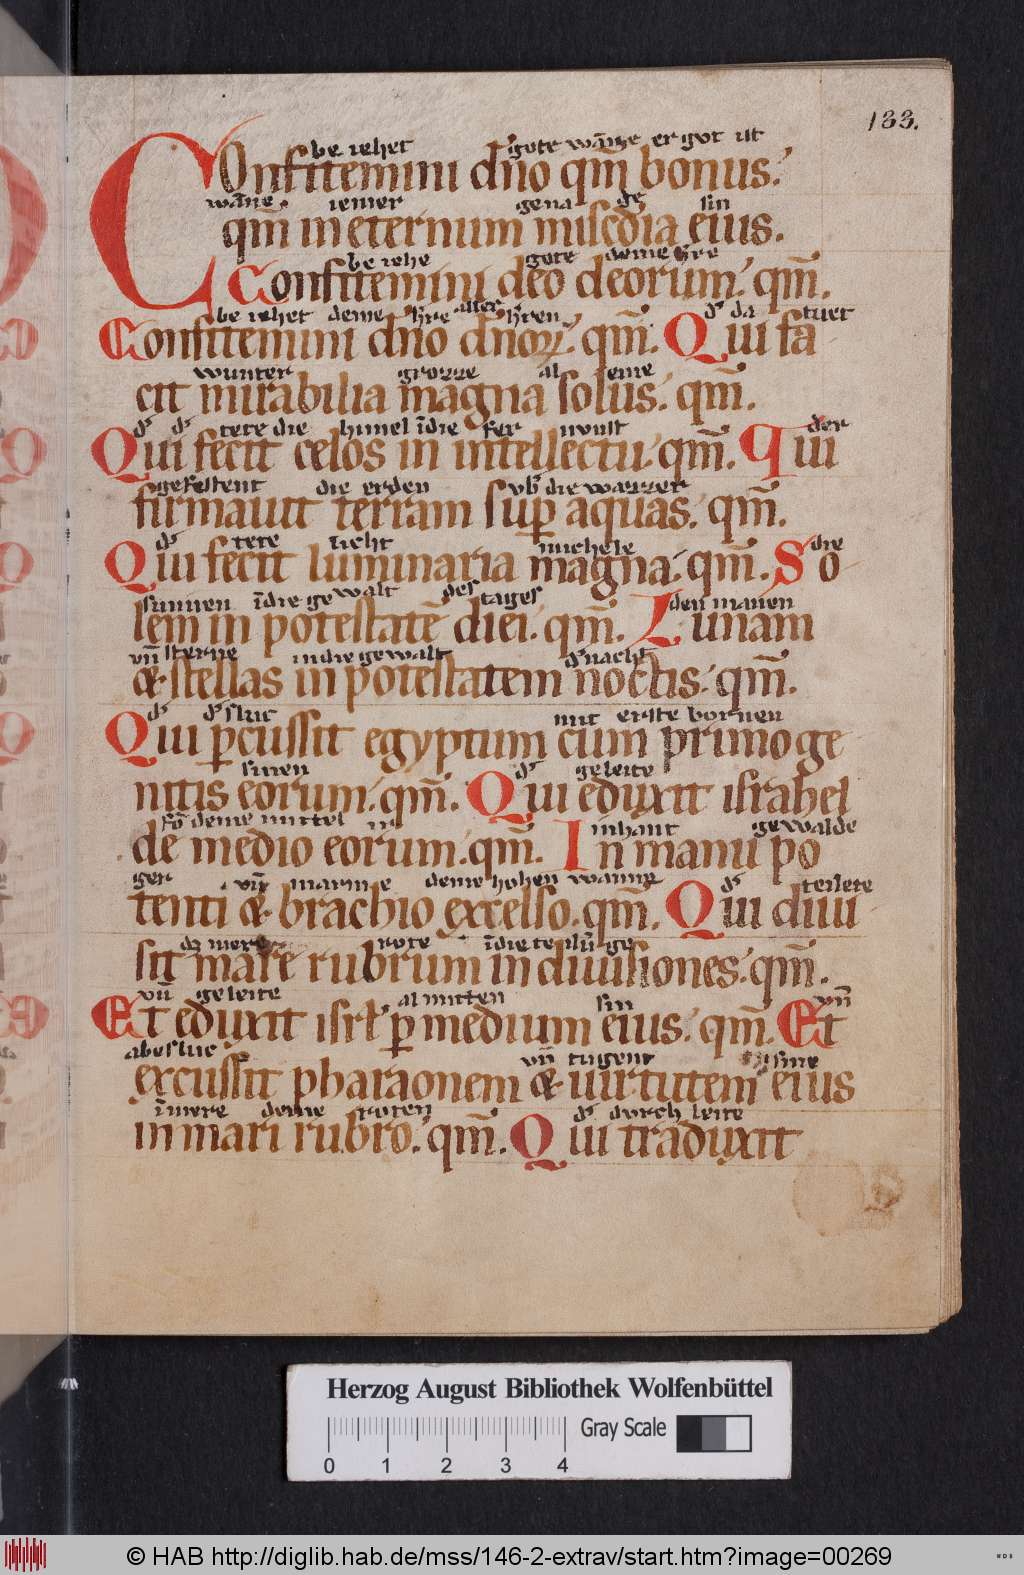 133.
be iehet gote wāne er got ist
COnfitemini dño qm̄ bonus.
wāne iemer gena ge sin
qm̄ in eternum misedia eius.
be iehe gote deme
Confitemini deo deorum. qm̄.
be iehet deme hre aller hren d̕ da tuet
Confitemini dño dñoꝝ. qm̄. Qui fa
wunter grozze al eine
cit mirabilia magna solus. qm̄.
d̕ d̕ tete die himel īdie fer nuust der
Qui fecit celos in intellectu. qm̄. Qui
gefestent die erden vb̕ die wazzer
firmauit terram sup̄ aquas. qm̄.
d̕ tete licht michele die
Qui fecit luminaria magna. qm̄. So
sunnen īdie gewalt des tages den manen
lem in potestatē diei. qm̄. Lunam
vn̄ sterne indie gewalt d̕ nacht
& stellas in potestatem noctis. qm̄.
d̕ d̕ sluc mit erste bornen
Qui ꝑcussit egyptum cum primoge
sinen d̕ geleite
nitis eorum. qm̄. Qui eduxit israhel
fō deme mittel ir inhant gewalde
de medio eorum. qm̄. In manu po
ger vn̄ deme hohen d̕ teilete
tenti & brachio excelso. qm̄. Qui diui
dz mere rote īdie teilūge
sit mare rubrum in diuisiones. qm̄.
vn̄ geleite al mitten sin vn̄
Et eduxit isrl̄ ꝑ medium eius. qm̄. Et
abesluc vn̄ tugent sine
excussit pharaonem & uirtutem eius
īmere deme roten d̕ durch leite
in mari rubro. qm̄. Qui traduxit
Herzog August Bibliothek Wolfenbüttel
Gray Scale
0 1 2 3 4
© HAB http://diglib.hab.de/mss/146-2-extrav/start.htm?image=00269